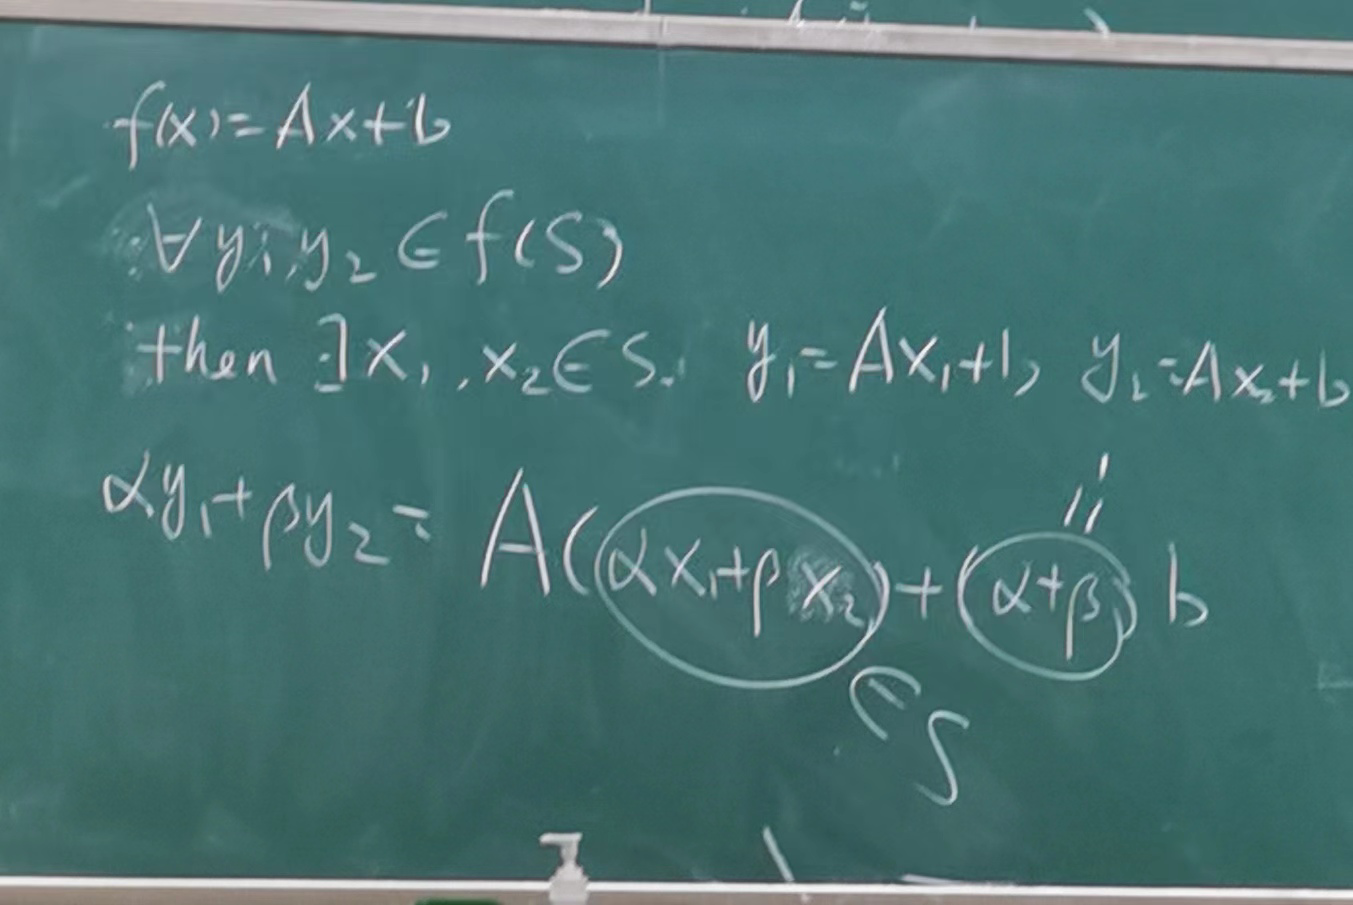 f(x)=Ax+b
∀y₁,y₂∈f(S)
then ∃x₁,x₂∈S. y₁=Ax₁+b, y₂=Ax₂+b
αy₁+βy₂=A(αx₁+βx₂)+(α+β)b
=1
∈S